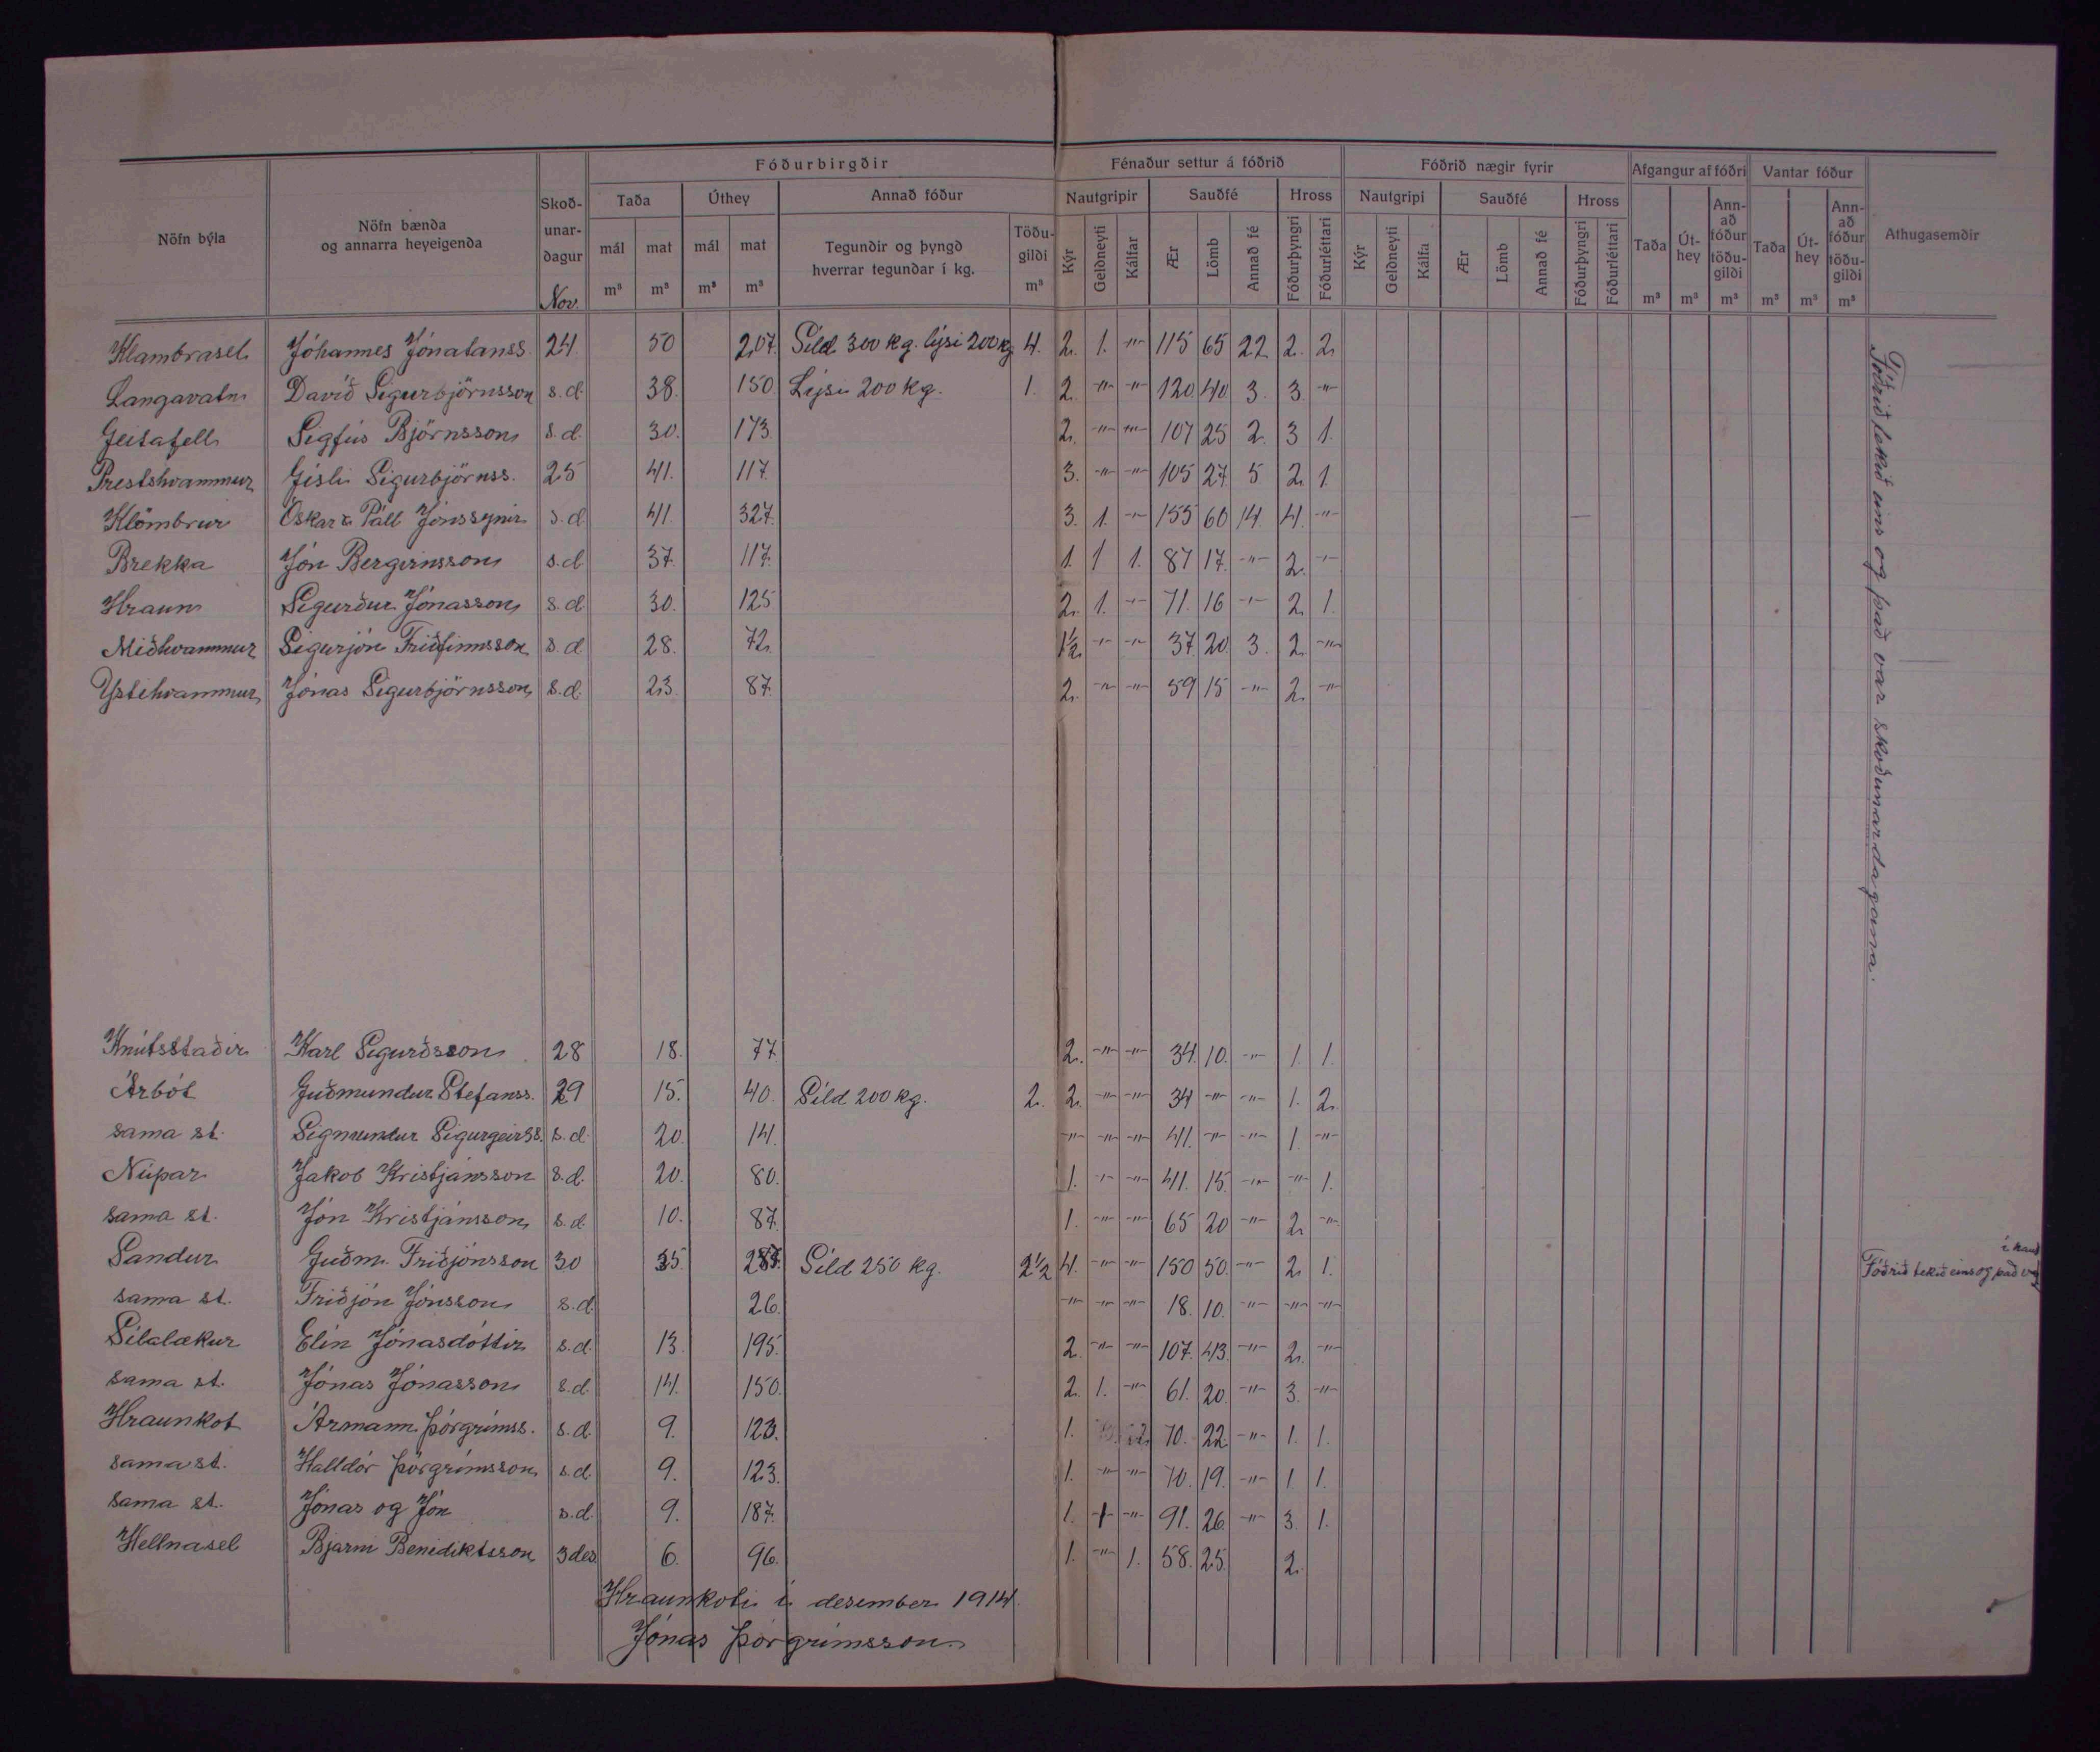 Fóðurbirgðir Fénaður settur á fóðrið Fóðrið nægir fyrir Afgangur af fóðri Vantar fóður
Nöfn býla Nöfn bænda og annarra heyeigenda Skoð-unar-dagur Nov. Taða Úthey Annað fóður Nautgripir Sauðfé Hross Nautgripi Sauðfé Hross Taða Út-hey Ann-að fóður töðu-gildi Taða Út-hey Ann-að fóður töðu-gildi Athugasemdir
mál mat mál mat Tegundir og þyngd hverrar tegundar í kg. Töðu-gildi Kýr Geldneyti Kálfar Ær Lömb Annað fé Fóðurþyngri Fóðurléttari Kýr Geldneyti Kálfa Ær Lömb Annað fé Fóðurþyngri Fóðurléttari
m³ m³ m³ m³ m³ m³ m³ m³ m³ m³ m³
Klambrasel Jóhannes Jónatanss. 24 50 207. Síld 300 kg. lýsi 200 kg 4. 2. 1. -"- 115 65 22 2. 2.
Langavatn Davíð Sigurbjörnsson s.d. 38. 150 Lýsi 200 kg. 1. 2. -"- -"- 120. 40. 3. 3. -"-
Geitafell Sigfús Björnsson s.d. 30. 173. 2. -"- -"- 107 25 2. 3 1.
Presthvammur Gísli Sigurbjörnss. 25 41. 117. 3. -"- -"- 105 27. 5. 2. 1.
Klömbrur Óskar & Páll Jónssynir s.d. 41. 327. 3. 1. -"- 155 60 14. 4. -"-
Brekka Jón Bergvinsson s.d. 37. 117. 1. 1 1. 87 17. -"- 2. -"-
Hraun Sigurður Jónasson s.d. 30. 125 2. 1. -"- 71. 16 -"- 2. 1.
Miðhvammur Sigurjón Friðfinnsson s.d. 28. 72. 1½ -"- -"- 37. 20. 3. 2. -"-
Ystihvammur Jónas Sigurbjörnsson s.d. 23. 87. 2. -"- -"- 59 15 -"- 2. -"-
Fóðrið tekið eins og það var skoðunardagana.
Knútsstaðir Karl Sigurðsson 28 18. 77. 2. -"- -"- 34. 10. -"- 1. 1.
Árbót Guðmundur Stefánss. 29 15. 40. Síld 200 kg. 2. 2. -"- -"- 34 -"- -"- 1. 2.
sama st. Sigmundur Sigurgeirss. s.d. 20. 14. -"- -"- -"- 41. -"- -"- 1. -"-
Núpar Jakob Kristjánsson s.d. 20. 80. 1. -"- -"- 41. 15. -"- -"- 1.
sama st. Jón Kristjánsson s.d. 10. 87. 1. -"- -"- 65 20 -"- 2. -"-
Sandur Guðm. Friðjónsson 30 35 Síld 250 kg. 2½ 4. -"- -"- 150 50. -"- 2. 1. Fóðrið tekið eins og það var í haust
sama st. Friðjón Jónsson s.d. 26. -"- -"- -"- 18. 10. -"- -"- -"-
Sílalækur Elín Jónasdóttir s.d. 13. 195. 2. -"- -"- 107. 43. -"- 2. -"-
sama st. Jónas Jónasson s.d. 14. 150. 2. 1. -"- 61. 20. -"- 3. -"-
Hraunkot Ármann Þórgrímss. s.d. 9. 123. 1. 70. 22. -"- 1. 1.
sama st. Halldór Þórgrímsson s.d. 9. 123. 1. -"- -"- 70. 19. -"- 1. 1.
sama st. Jónas og Jón s.d. 9. 187. 1. 1 -"- 91. 26. -"- 3. 1.
Hellnasel Bjarni Benediktsson 3 des. 6. 96. 1. -"- 1. 58. 25. 2.
Hraunkoti í desember 1914.
Jónas Þórgrímsson.